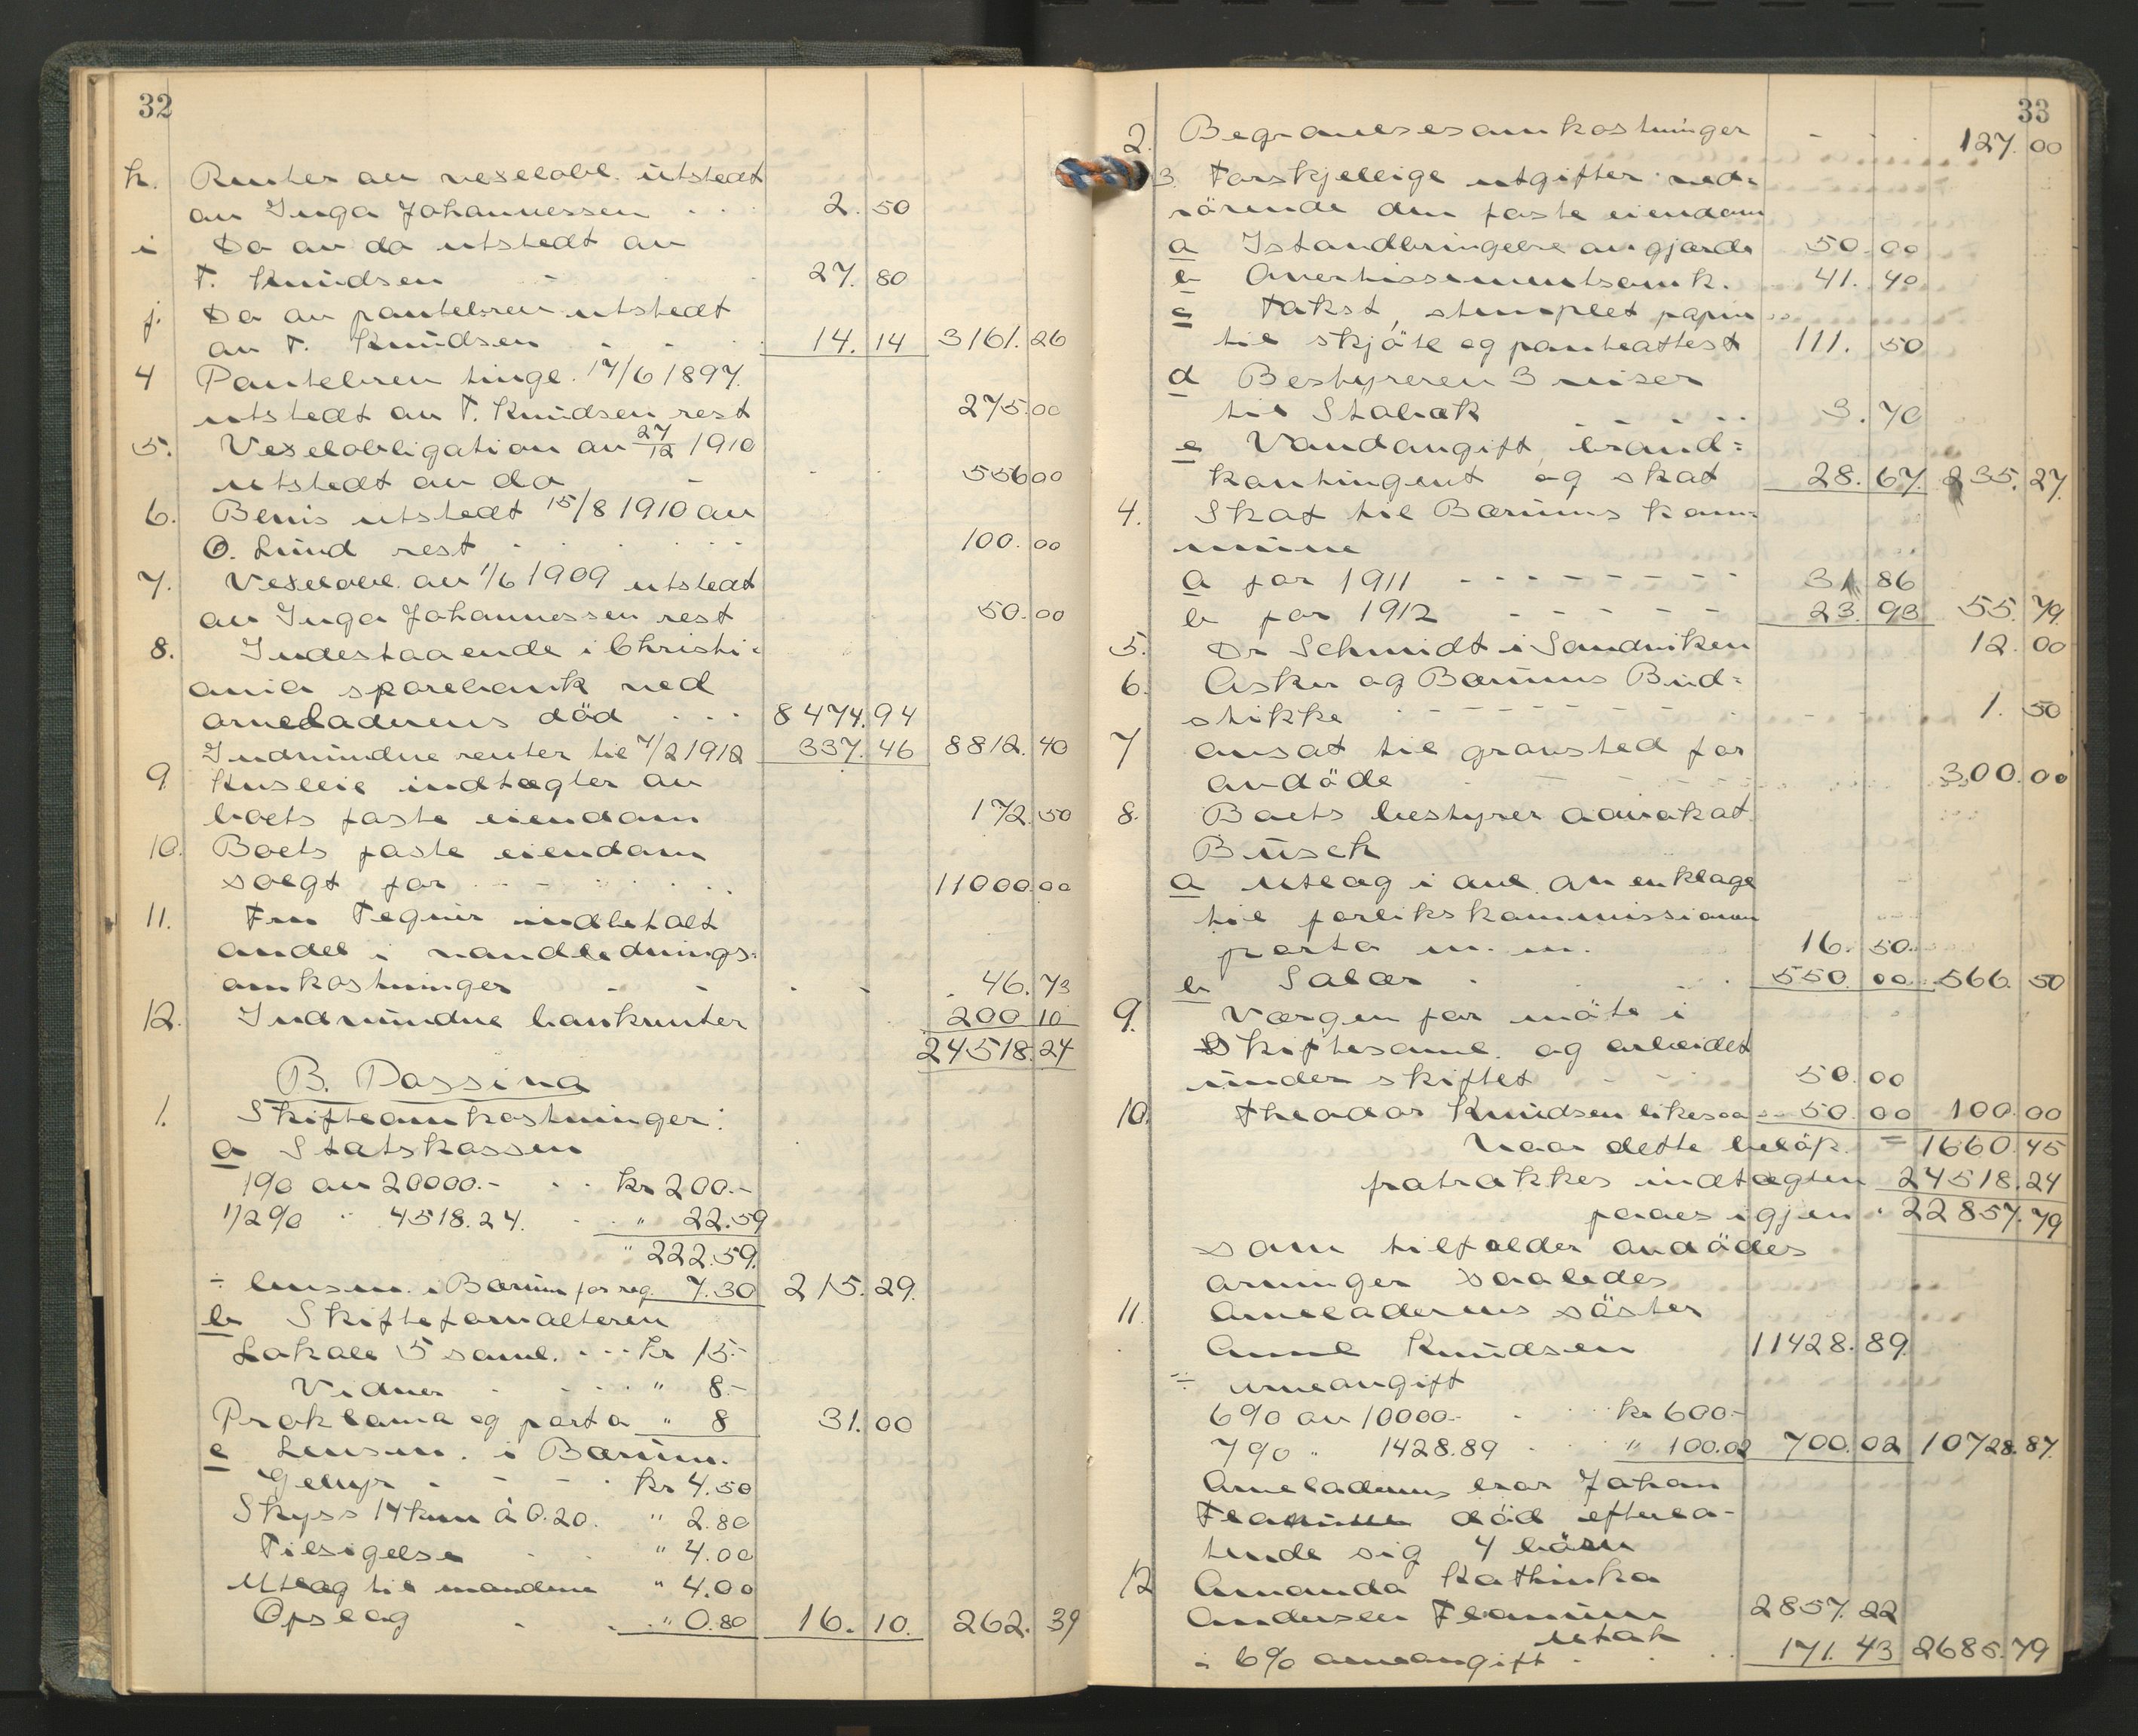 32
h. Renter av vexelobl. utstedt
av Inga Johannessen . . . 2. 50
i Do av do utstedt av
T. Knudsen - . 27. 80
j. Do av pantebrev utstedt
av T. Knudsen . . . 14. 14 3161. 26
4 Pantebrev tingl. 17/6 1897.
utstedt av T. Knudsen rest 275.00
5. Vexelobligation av 27/12 1910
utstedt av do - . . 556 00
6. Bevis utstedt 15/8 1910 av
O. Lund rest . . . . . 100. 00
7. Vexelobl. av 1/6 1909 utstedt
av Inga Johannessen rest 50. 00
8. Indestaaende i Christi-
ania sparebank ved
arveladerens död . . . 8474. 94
Indvundne renter til 7/2 1912 337. 46 8812. 40
9. Husleie indtægter av
boets faste eiendom 172. 50
10. Boets faste eiendom
solgt for . . - . . . . 11000.00
11. Fru Tegnér indbetalt
andel i vandlednings-
omkostninger - - . - . 46. 73
12. Indvundne bankrenter 200 10
24518.24
B. Passiva
1. Skifteomkostninger:
a Statskassen
1% av 20000.- . . kr 200.-
1/2% " 4518.24. . . " 22.59
" 222.59.
÷ lensm. i Bærum for reg. 7.30 215. 29.
b Skifteforvalteren
Lokale 5 saml. . - - kr 15.-
Vidner . . . . " 8.-
Proklama og porto " 8 31. 00
c Lensm. i Bærum.
Gebyr . - - - . kr 4.50
Skyss 14 km à 0.20. " 2.80
Tilsigelse . . " 4.00
Utlæg til mændene " 4.00
Opslag . . " 0.80 16. 10. 262. 39
33
2. Begravelsesomkostninger - . . 127. 00
3. Forskjellige utgifter ved-
rörende den faste eiendom
a Istandbringelse av gjærde 50. 00
b Avertissementsomk. 41. 40
c Takst, stemplet papir
til skjöte og panteattest 111. 50
d Bestyreren 3 reiser
til Stabæk . . . . 3. 70
e Vandavgift, brand=
kontingent og skat 28. 67. 235. 27.
4. Skat til Bærums kom=
mune
a for 1911 - - - - - - - - 31 86
b for 1912 - - - - - 23. 93 55. 79.
5. Dr Schmidt i Sandviken 12. 00
6. Asker og Bærums Bud=
stikke - - - - - - - - . 1. 50
7 avsat til gravsted for
avdöde . - - - - - 300.00
8. Boets bestyrer advokat
Busch
a utlæg i anl. av en klage
til forlikskommissionen
porto m. m. 16. 50.
b Salær . . . 550. 00 566. 50
9. Værgen for möte i
Skiftesaml. og arbeidet
under skiftet . - . 50. 00
10. Theodor Knudsen likesaa 50. 00 100. 00
Naar dette belöp. = 1660. 45
fratrækkes indtægten 24518. 24
faaes igjen . 22857. 79
som tilfalder avdödes
arvinger saaledes
11. Arveladerens söster
Anne Knudsen 11428. 89.
÷ arveavgift
6% av 10000.- . . kr 600.-
7% " 1428.89 . . " 100.02 700. 02 10728.87.
Arveladerens bror Johan
död efterla-
tende sig 4 börn
12 Amanda Kathinka
Andersen 2857. 22
utah
÷ 6% arveavgift . . . 171. 43 2685. 79